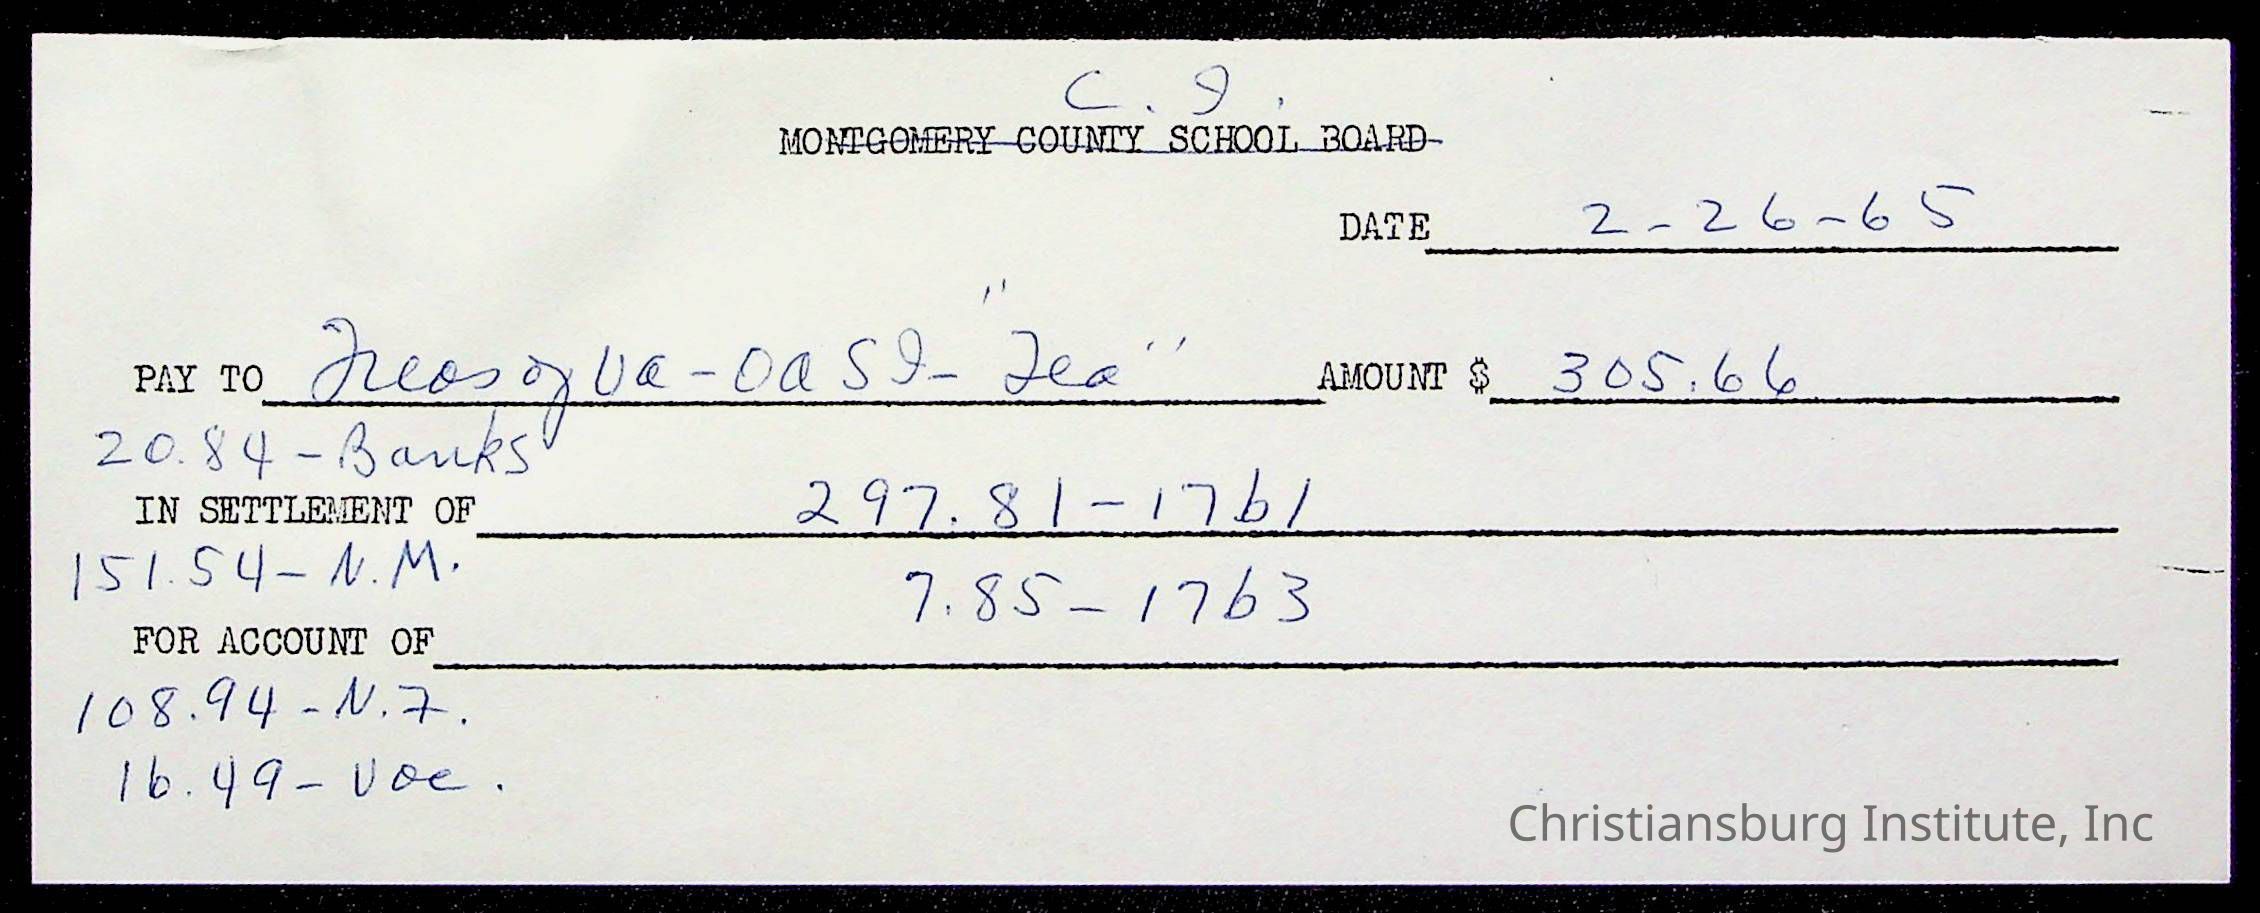 C. I.
MONTGOMERY COUNTY SCHOOL BOARD
DATE 2-26-65
PAY TO Treas of Va - OASI - "Tea" AMOUNT $ 305.66
20.84 - Banks
IN SETTLEMENT OF 297.81 - 1761
151.54 - N.M.
7.85 - 1763
FOR ACCOUNT OF
108.94 - N.F.
16.49 - Voc.
Christiansburg Institute, Inc